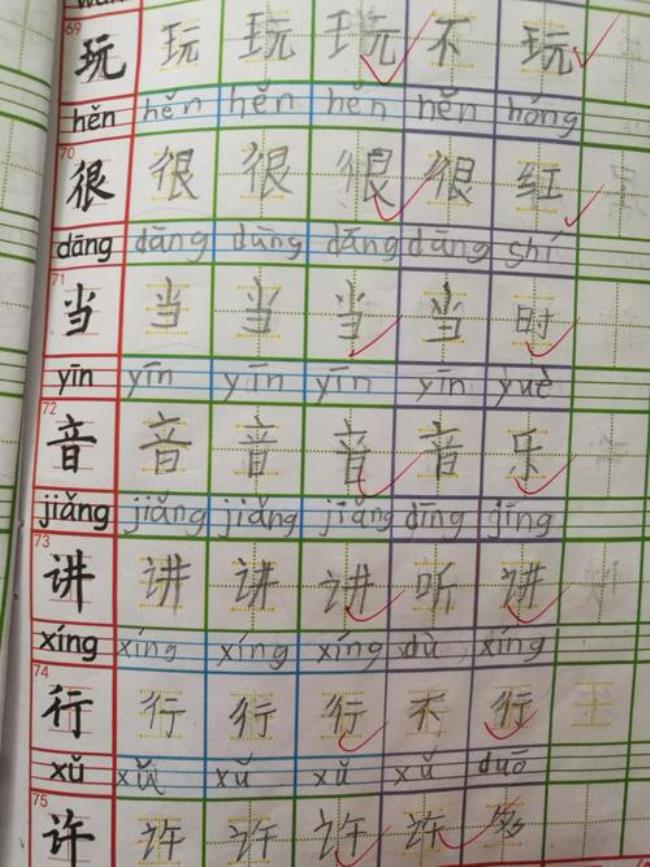 69
玩 玩 玩 玩 不 玩
hěn hěn hěn hěn hěn hóng
70
很 很 很 很 很 红
dāng dāng dāng dāng dāng shí
71
当 当 当 当 当 时
yīn yīn yīn yīn yīn yuè
72
音 音 音 音 音 乐
jiǎng jiǎng jiǎng jiǎng dīng jīng
73
讲 讲 讲 讲 听 讲
xíng xíng xíng xíng dù xíng
74
行 行 行 行 不 行
xǔ xǔ xǔ xǔ xǔ duō
75
许 许 许 许 许 多